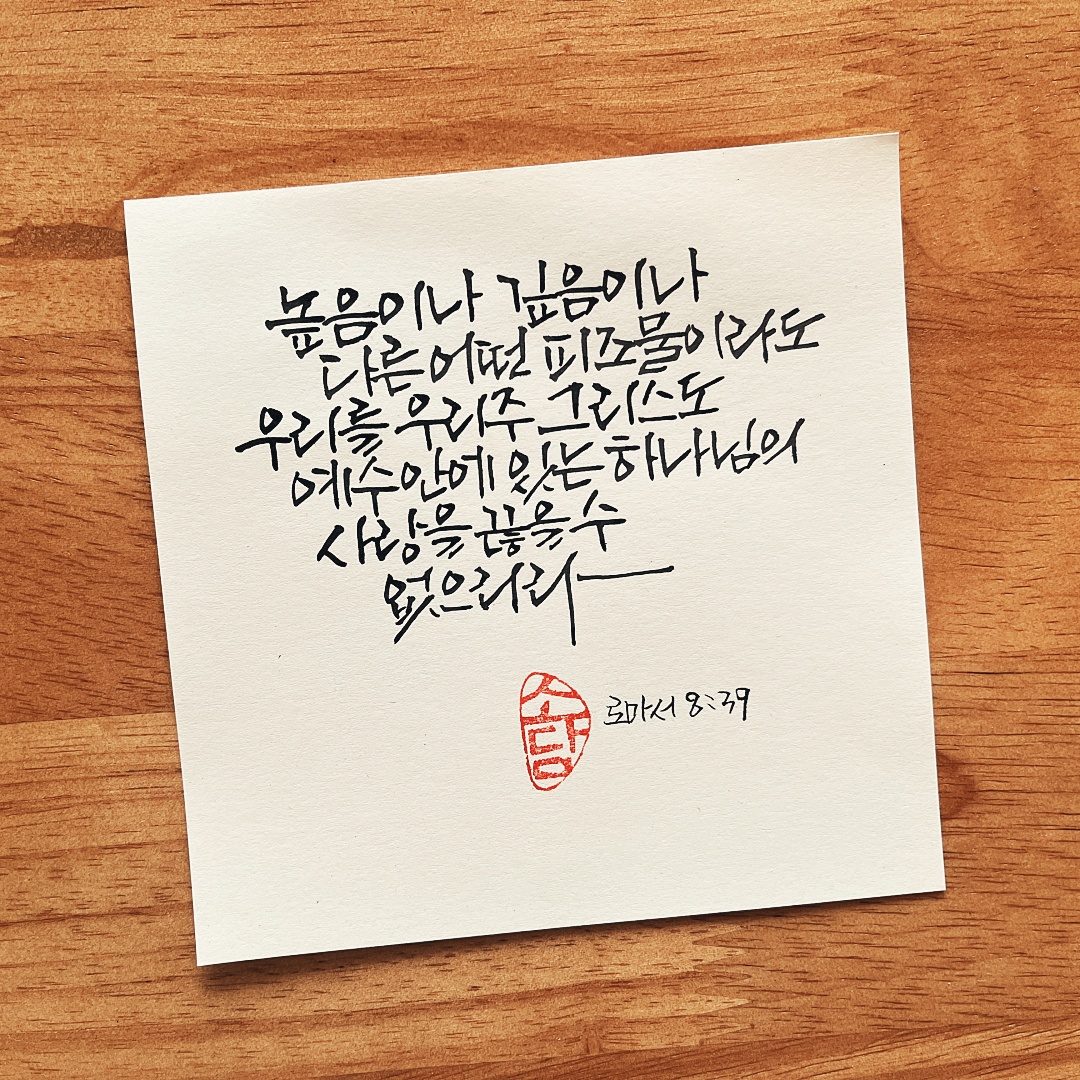 높음이나 깊음이나
다른 어떤 피조물이라도
우리를 우리 주 그리스도
예수 안에 있는 하나님의
사랑을 끊을 수
없으리라
소담
로마서 8:39